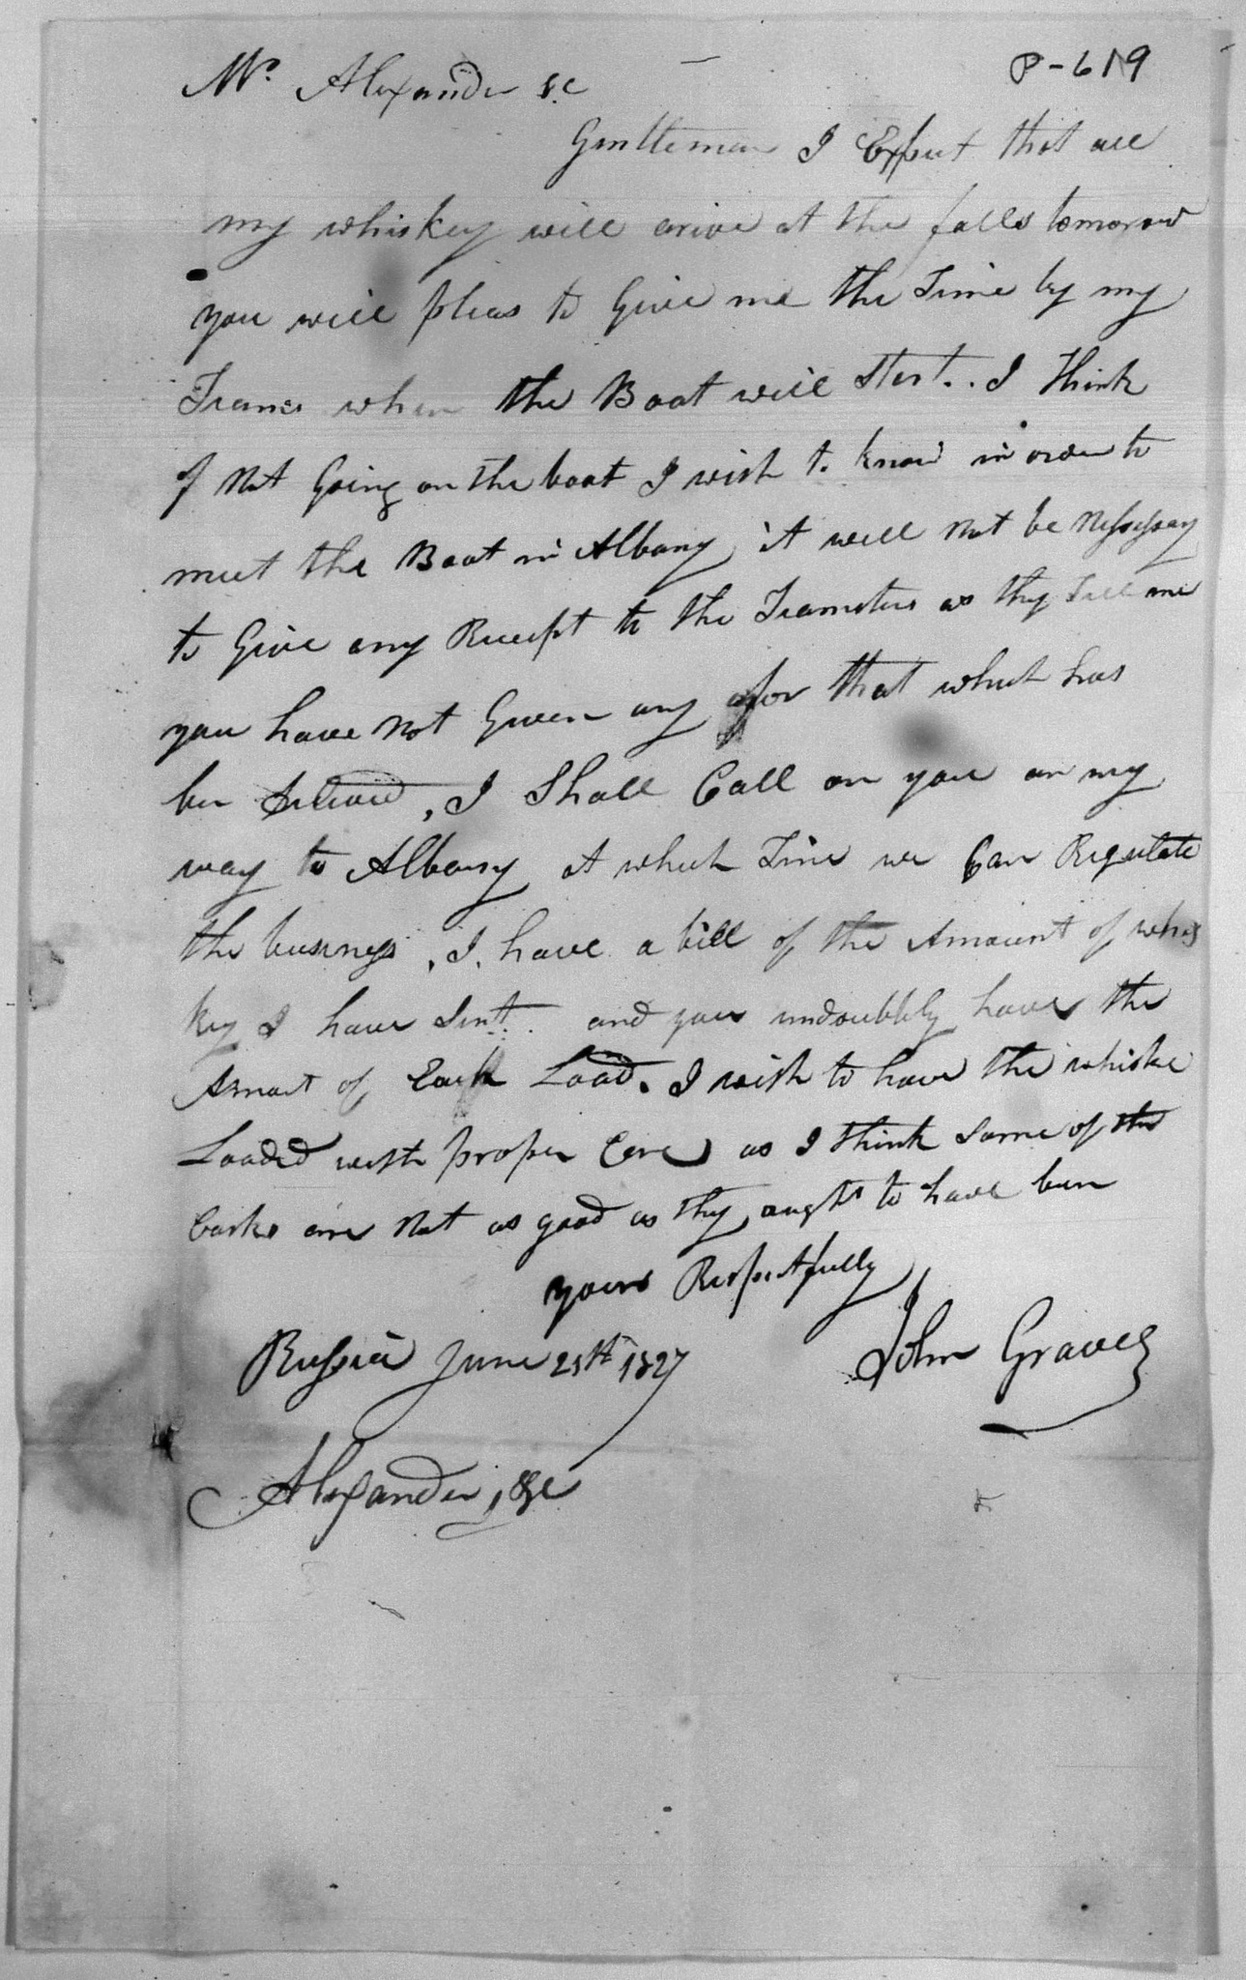 Mr. Alexander &c
P-619
Gentlemen I Expect that all
my whiskey will arive at the falls tomorow
you will pleas to Give me the Time by my
Teams when the Boat will Start.. I think
of Not Going on the boat I wish to know in order to
meet the Boat in Albany, it will Not be Nessessary
to Give any Receipt to the Teamsters as they tell me
you have Not Given any for that which has
ben , I Shall Call on you on my
way to Albany at which Time we Can Regulate
the business, I have a bill of the Amount of whis
key I have Sent. and you undoubtly have the
Amout of Each Load. I wish to have the whiske
Loaded with proper Care as I think Some of the
Casks are Not as good as they aught to have ben
yours Respectfully
Russia June 25th 1827
John Graves
Alexander, &c